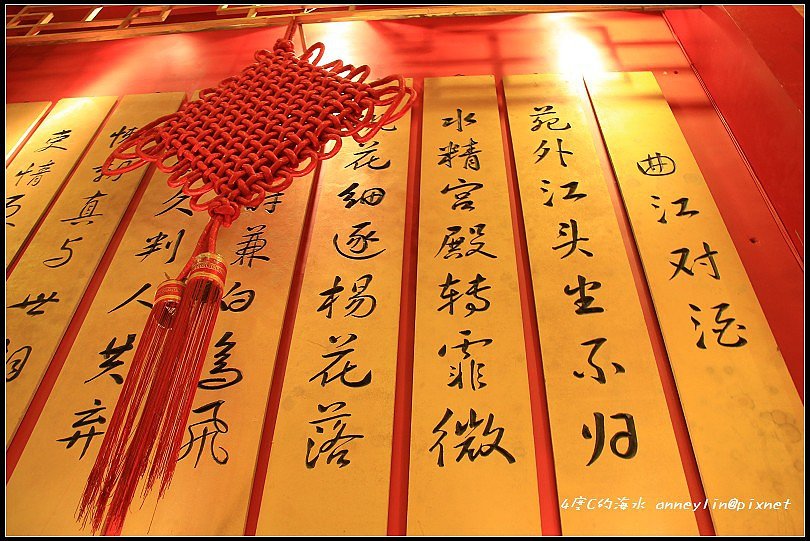 曲江对酒
苑外江头坐不归
水精宫殿转霏微
花细逐杨花落
兼白鸟飞
久判人共弃
真与世相
吏情
4度C的海水 anneylin@pixnet